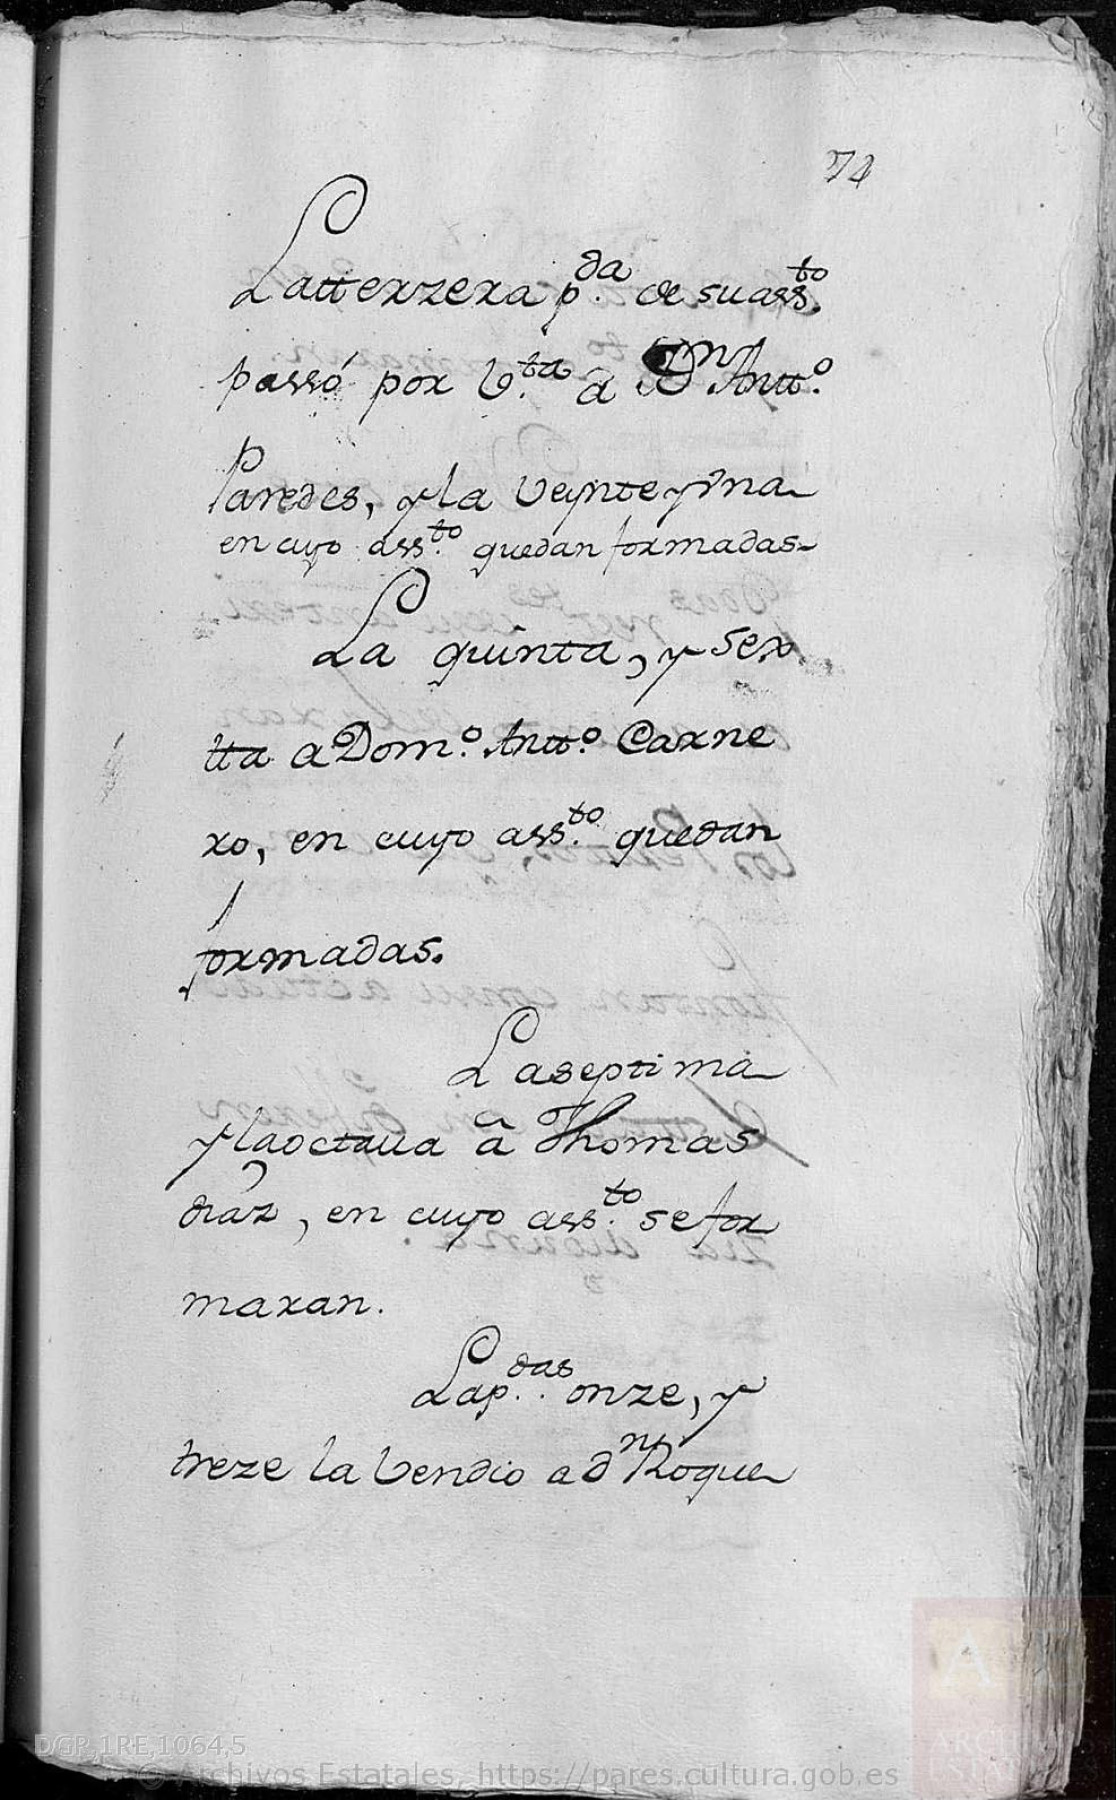 74
La tterzera p.da de su ass.to
passó por b.ta â Dn Antt.o
Paredes, y la veynte y vna
en cuyo ass.to quedan formadas
La quinta, y sex
tta a Dom.o Antt.o Carne
ro, en cuyo ass.to quedan
formadas.
La septima
y la octaua â Thomas
diaz, en cuyo ass.to se for
maran.
La p.das onze, y
treze la bendio a dn Roque
DGR,1RE,1064,5
© Archivos Estatales, https://pares.cultura.gob.es